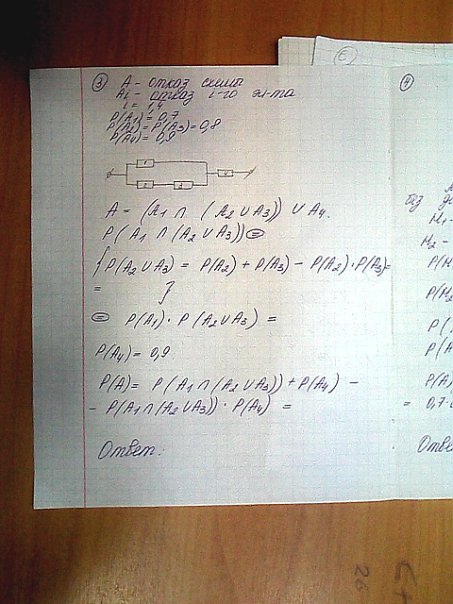 3 A - отказ схемы
Ai - отказ i-го эл-та
i = 1,4
P(A1) = 0,7
P(A2) = P(A3) = 0,8
P(A4) = 0,9
1
2 3
4
A = (A1 ∩ (A2 ∪ A3)) ∪ A4.
P(A1 ∩ (A2 ∪ A3)) =
{P(A2 ∪ A3) = P(A2) + P(A3) - P(A2)·P(A3) =
= }
= P(A1) · P(A2 ∪ A3) =
P(A4) = 0,9
P(A) = P(A1 ∩ (A2 ∪ A3)) + P(A4) -
- P(A1 ∩ (A2 ∪ A3)) · P(A4) =
Ответ:
4
без
H1 -
H2 -
P(H
P(H2
P(
P(A
P(A)
= 0,7·
Отве